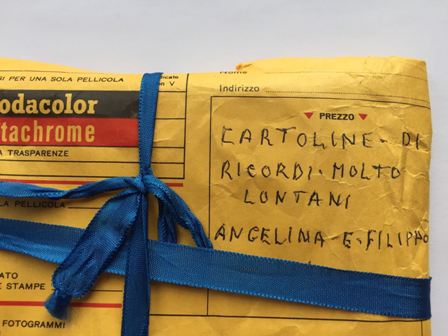 SI PER UNA SOLA PELLICOLA
on V
Nome
Indirizzo
odacolor
tachrome
A TRASPARENZE
PREZZO
CARTOLINE - DI
RICORDI - MOLTO
LONTANI
ANGELINA - E - FILIPPO
LA PELLICOLA
ATO
E STAMPE
FOTOGRAMMI